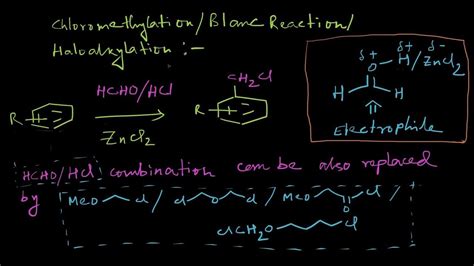 Chloromethylation/Blanc Reaction/
Haloalkylation :-
HCHO/HCl
ZnCl2
R
CH2Cl
R
δ+ δ-
δ+
O---H/ZnCl2
H H
Electrophile
HCHO/HCl combination can be also replaced
by MeO Cl / Cl O Cl / MeO O Cl
ClCH2O Cl